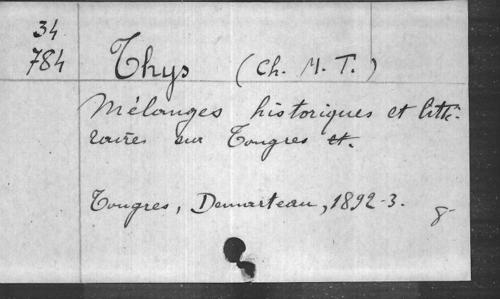 34
784
Thys (Ch. M. T.)
Mélanges historiques et litté-
raires sur Tongres et.
Tongres, Demarteau, 1892-3. 8-